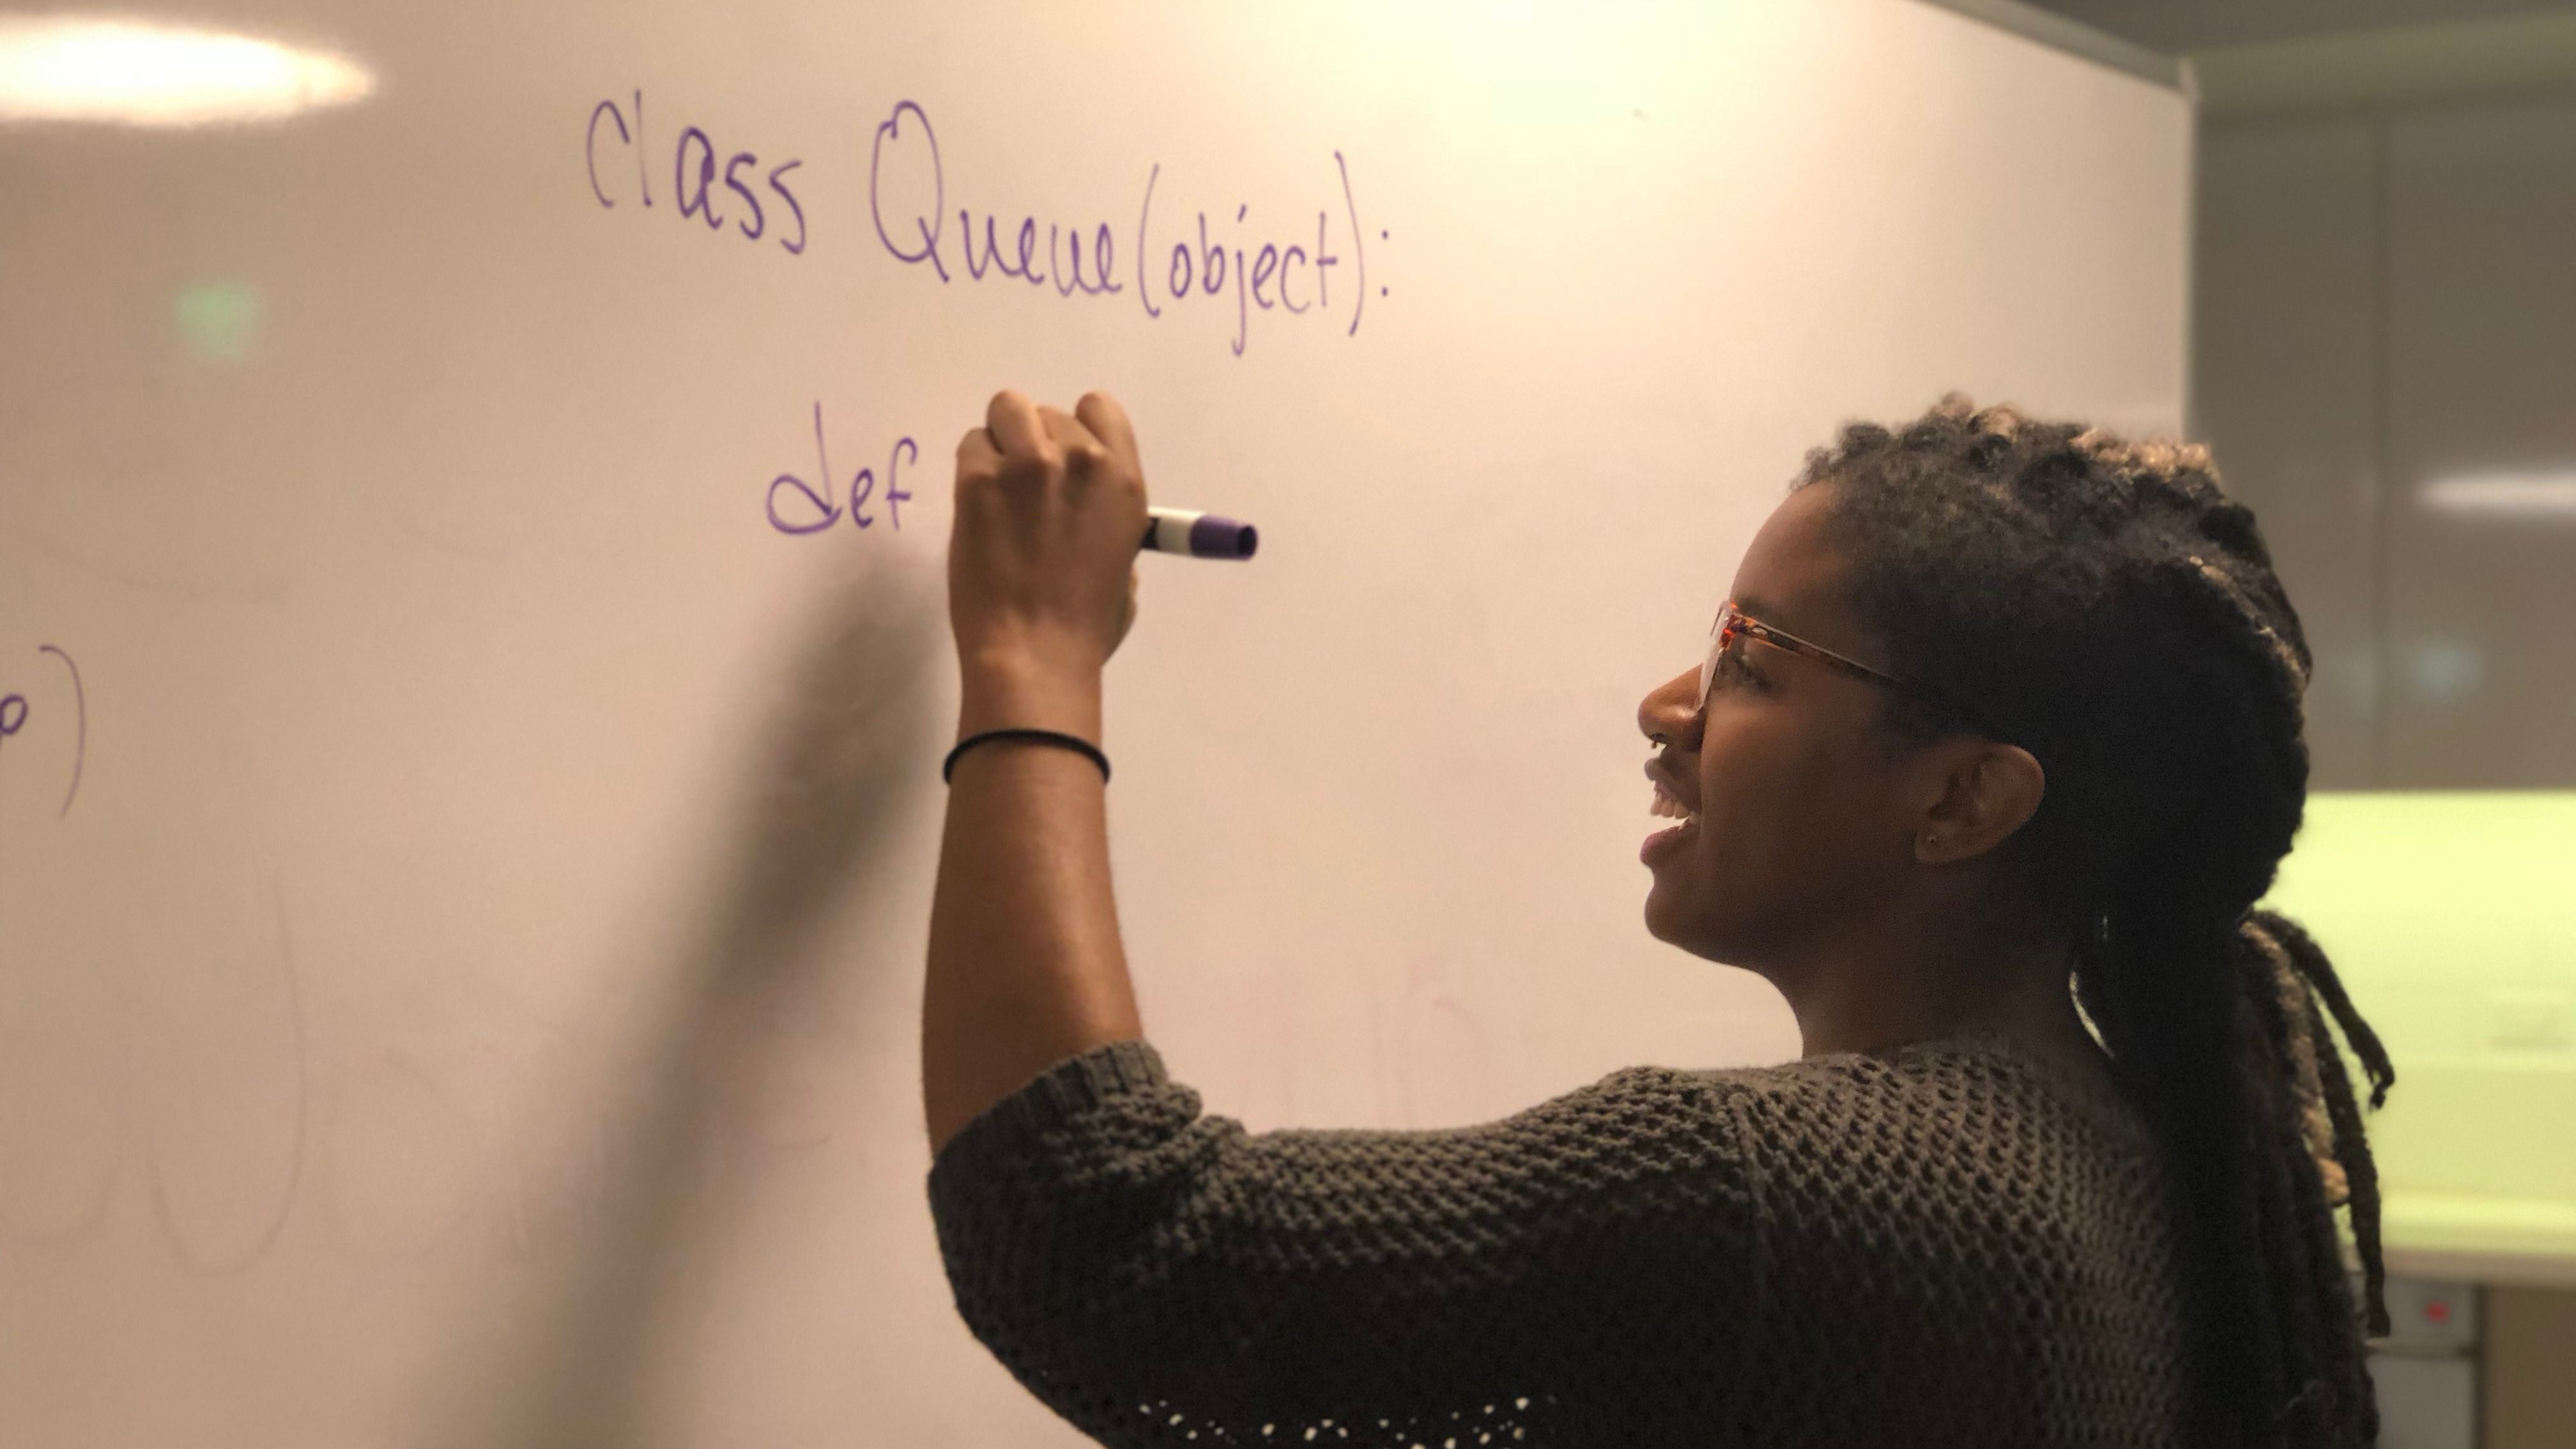 class Queue(object):
def